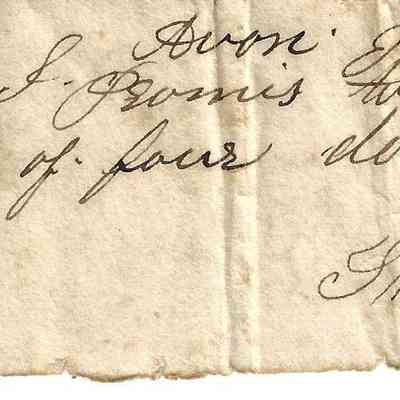 Avon.
I. Promis to
of. four do